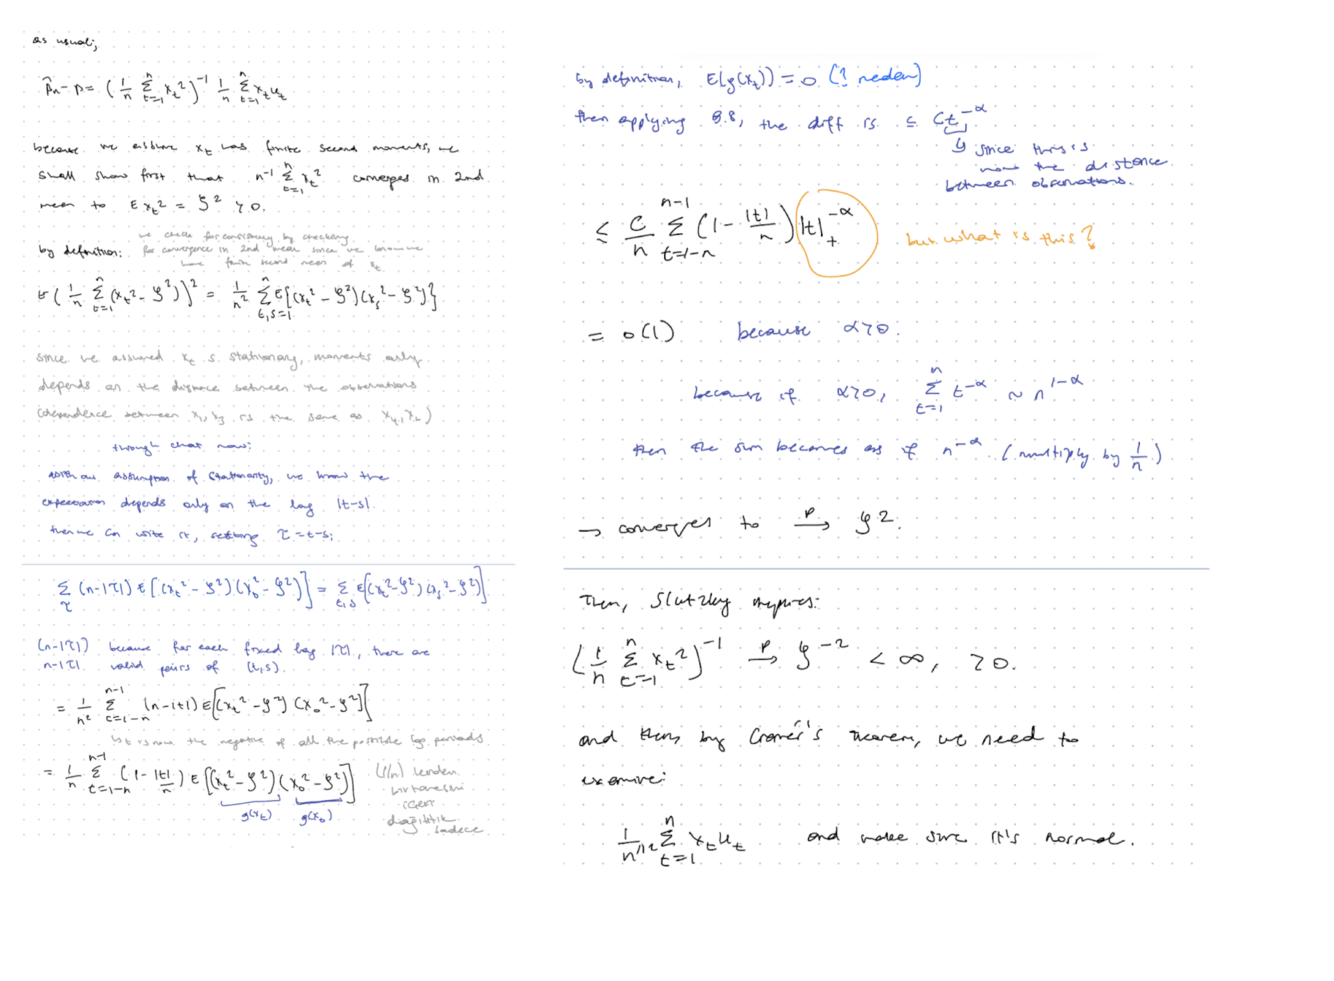 as usual;
ρ̂n - ρ = (1/n Σ_{t=1}^{n} x_t²)^{-1} 1/n Σ_{t=1}^{n} x_t u_t
because we assume x_t has finite second moments, we
shall show first that n^{-1} Σ_{t=1}^{n} x_t² converges in 2nd
mean to E x_t² = ζ² > 0.
we check for consistency by checking
by definition: for convergence in 2nd mean since we
have finite second mean of x_t
E(1/n Σ_{t=1}^{n} (x_t² - ζ²))² = 1/n² Σ_{t,s=1}^{n} E{(x_t² - ζ²)(x_s² - ζ²)}
since we assumed x_t s. stationary, moments only
depends on the distance between the observations
(dependence between x_1, x_3 is the same as x_4, x_2)
through chat now:
with our assumption of stationarity, we know the
expectation depends only on the lag |t-s|.
then we can write it, setting τ = t-s;
Σ_τ (n-|τ|) E[(x_t² - ζ²)(x_0² - ζ²)] = Σ_{t,s} E[(x_t² - ζ²)(x_s² - ζ²)]
(n-|τ|) because for each fixed lag |τ|, there are
n-|τ| valid pairs of (t,s).
= 1/n² Σ_{t=1-n}^{n-1} (n-|t|) E[(x_t² - ζ²)(x_0² - ζ²)]
↳ t is now the negative of all the possible lag periods
= 1/n Σ_{t=1-n}^{n-1} (1 - |t|/n) E[(x_t² - ζ²)(x_0² - ζ²)]
g(x_t) g(x_0)
(1/n) lerden
bir tanesini
içeri
dağıttık
sadece
by definition, E(g(x_t)) = 0 (? neden)
then applying 8.8, the diff is ≤ C t_+^{-α}
↳ since this is
now the distance
between observations.
≤ C/n Σ_{t=1-n}^{n-1} (1 - |t|/n) |t|_+^{-α} but what is this?
= o(1) because α>0.
because if α>0, Σ_{t=1}^{n} t^{-α} ~ n^{1-α}
then the sum becomes as if n^{-α}. (multiply by 1/n)
→ converges to →^p ζ².
Then, Slutzky applies:
(1/n Σ_{t=1}^{n} x_t²)^{-1} →^p ζ^{-2} < ∞, > 0.
and then, by Cramér's theorem, we need to
examine:
1/n^{1/2} Σ_{t=1}^{n} x_t u_t and make sure it's normal.